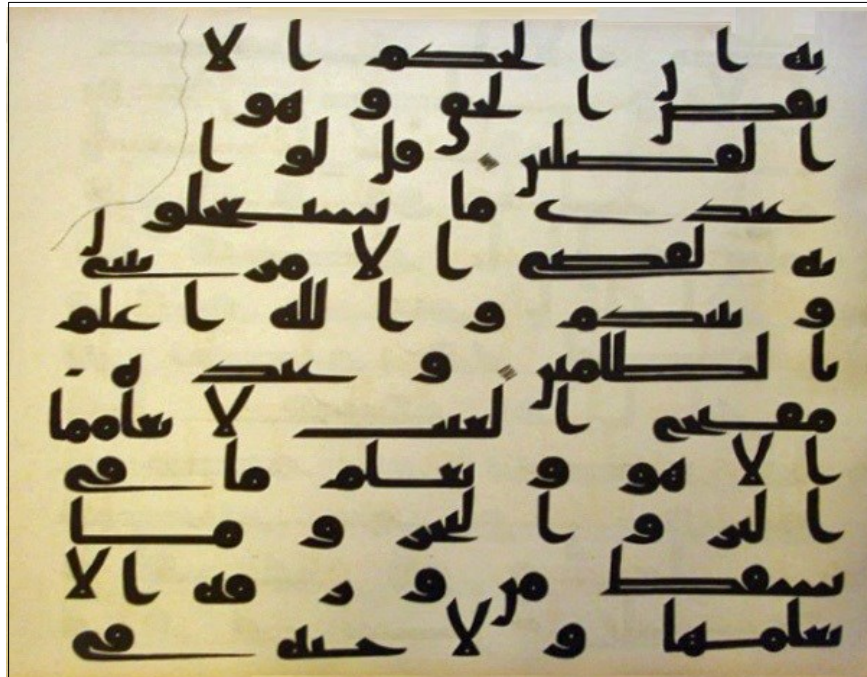 به ان الحكم الا
يقص الحق و هو
الفصلين قل لو ا
عندي ما تستعجلون
به لقضي الامر بيني
و بينكم و الله اعلم
بالظلمين و عنده
مفتح الغيب لا يعلمها
الا هو و يعلم ما في
البر و البحر و ما
تسقط من ورقه الا
يعلمها و لا حبه في